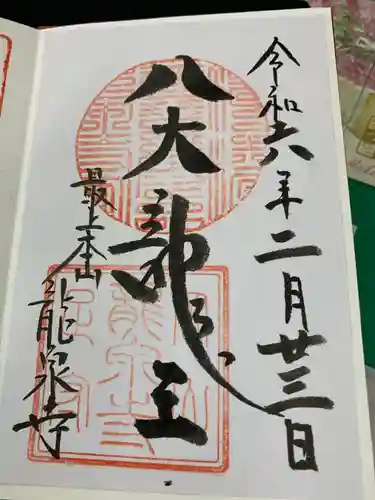 令和六年二月廿三日
八大龍王
最上本山龍泉寺